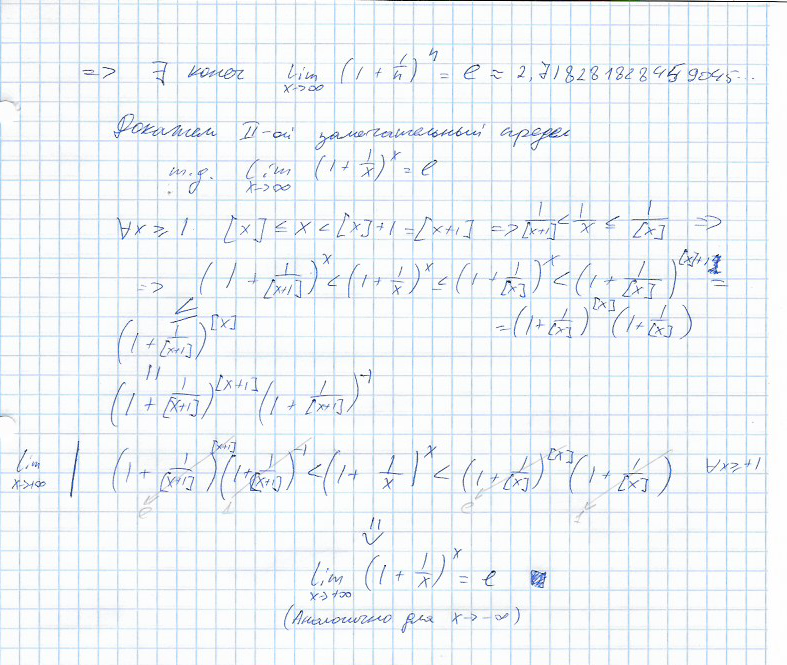 => ∃ конеч lim x->∞ (1 + 1/n)^n = e ≈ 2,718281828459045...
Докажем II-ой замечательный предел
т.д. lim x->∞ (1 + 1/x)^x = e
∀x ≥ 1 [x] ≤ x < [x]+1 = [x+1] => 1/[x+1] < 1/x ≤ 1/[x] =>
=> (1 + 1/[x+1])^x < (1 + 1/x)^x ≤ (1 + 1/[x])^x < (1 + 1/[x])^([x]+1) =
= (1 + 1/[x])^[x] (1 + 1/[x])
≤
(1 + 1/[x+1])^[x]
=
(1 + 1/[x+1])^[x+1] (1 + 1/[x+1])^-1
lim x->+∞ | (1 + 1/[x+1])^[x+1] (1 + 1/[x+1])^-1 < (1 + 1/x)^x < (1 + 1/[x])^[x] (1 + 1/[x]) ∀x≥+1
e 1 e 1
=>
lim x->+∞ (1 + 1/x)^x = e
(Аналогично для x->-∞)